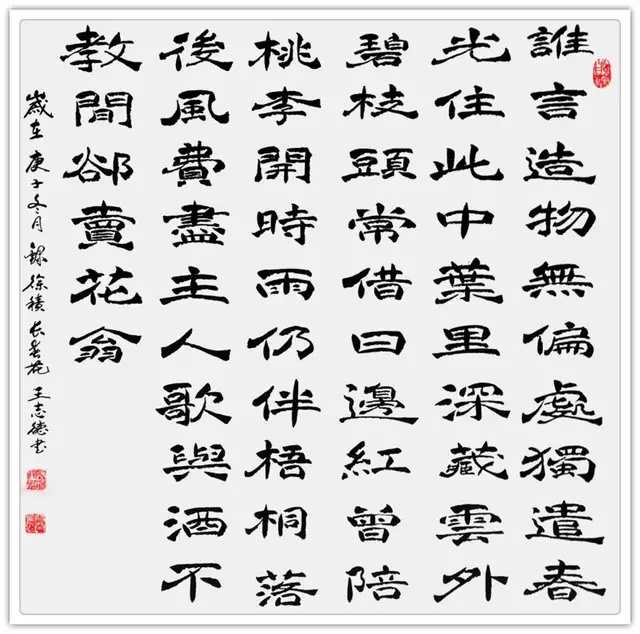 誰言造物無偏處獨遣春
光住此中葉里深藏雲外
碧枝頭常借日邊紅曾陪
桃李開時雨仍伴梧桐落
後風費盡主人歌與酒不
教閒郤賣花翁
歲在庚子冬月錄徐積长春花王志德书